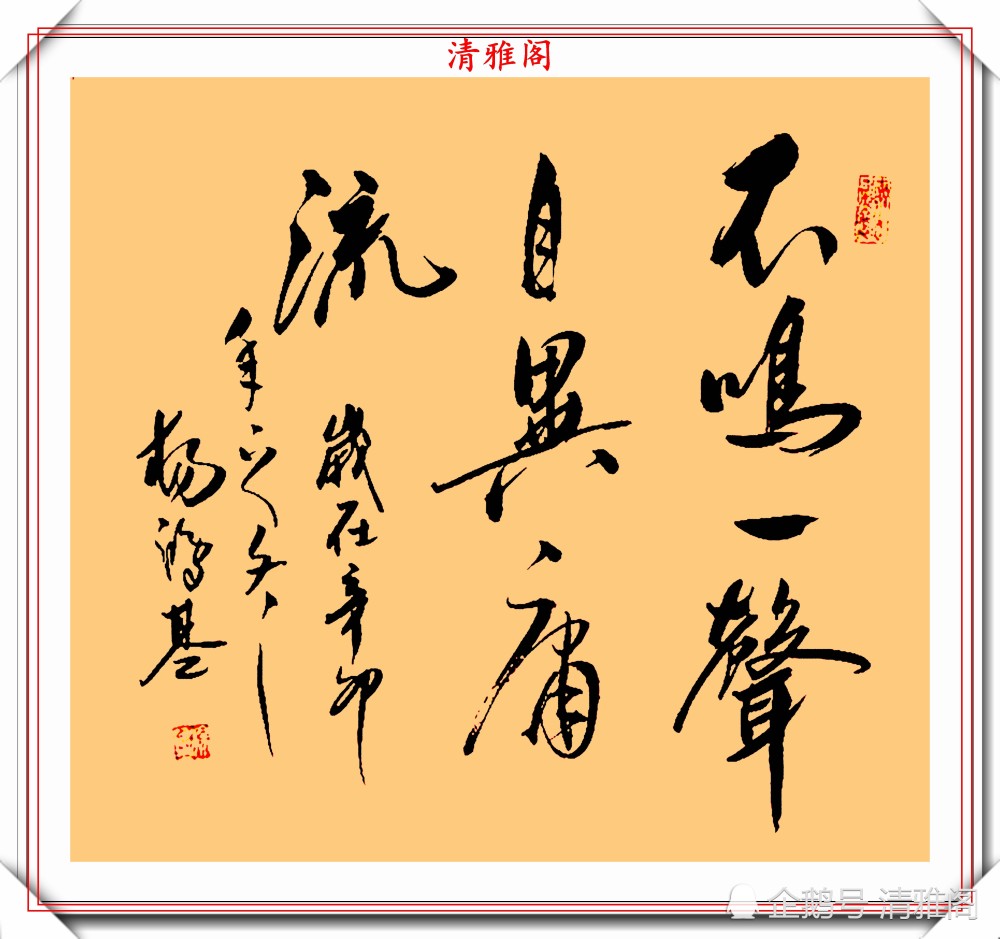 清雅阁
不鳴一聲
自異庸
流
歲在辛卯
年
楊鴻基
企鹅号 清雅阁